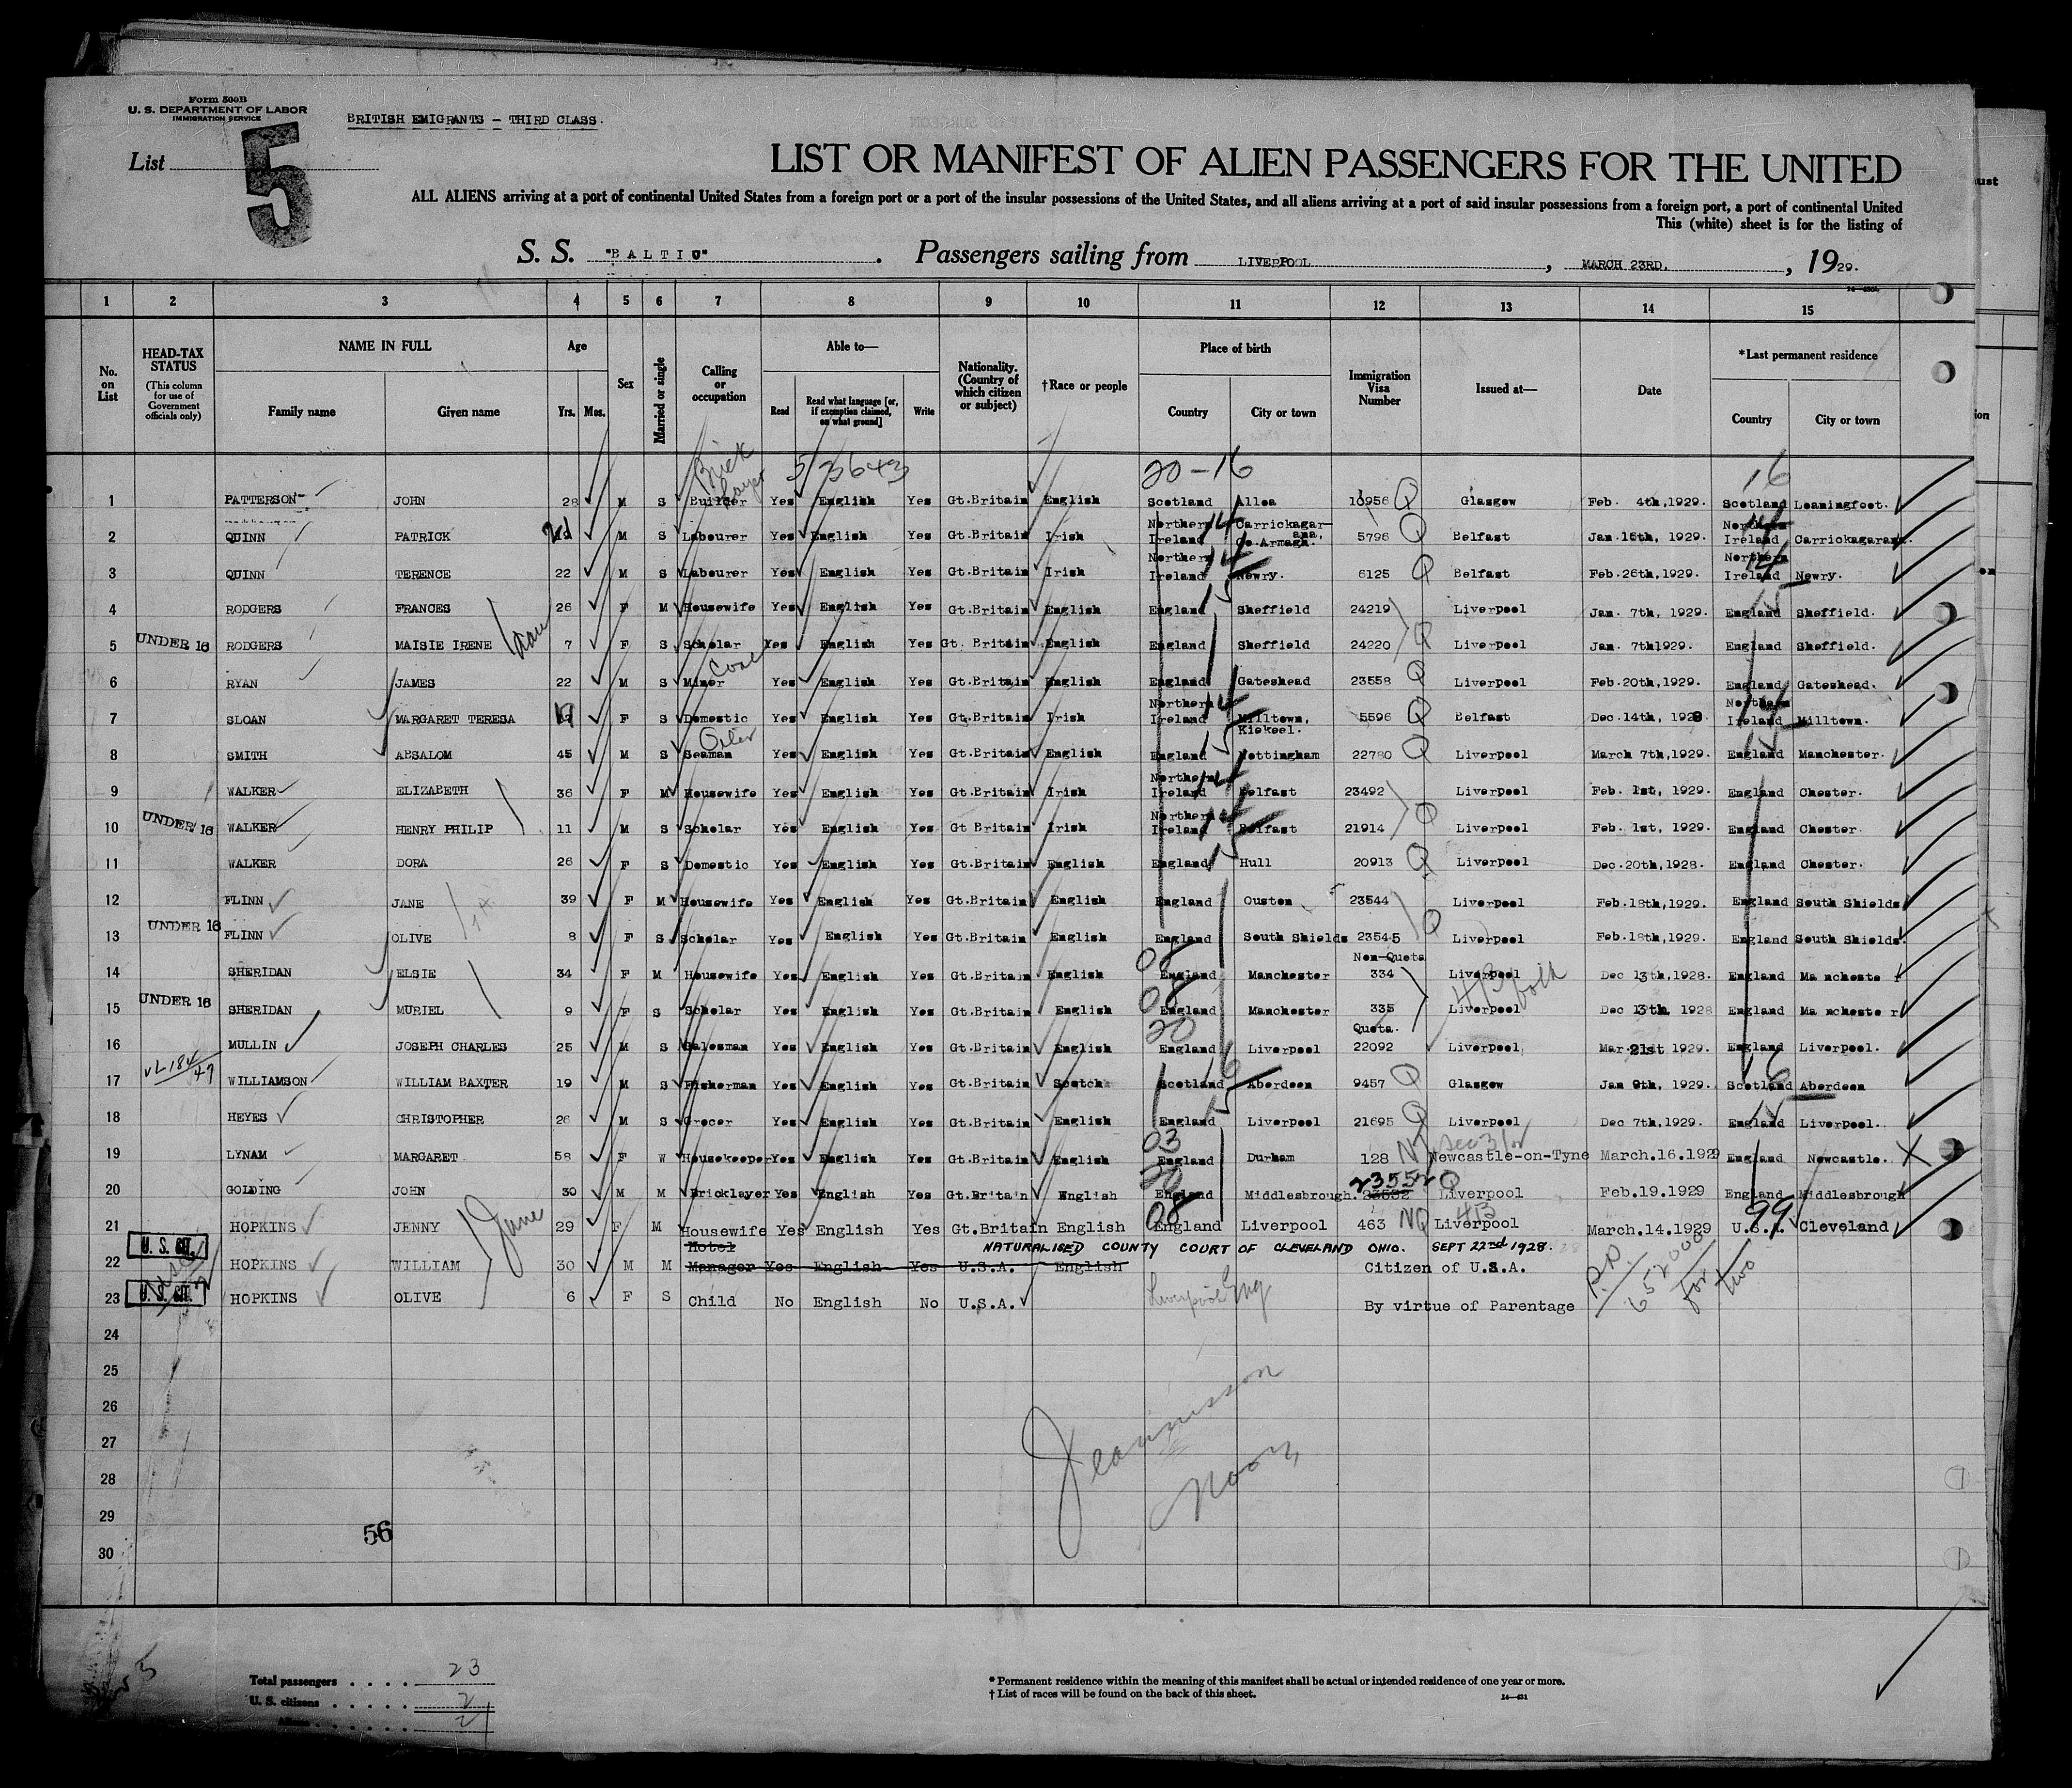 Form 500B
U. S. DEPARTMENT OF LABOR
IMMIGRATION SERVICE
BRITISH EMIGRANTS - THIRD CLASS.
List 5
LIST OR MANIFEST OF ALIEN PASSENGERS FOR THE UNITED
ALL ALIENS arriving at a port of continental United States from a foreign port or a port of the insular possessions of the United States, and all aliens arriving at a port of said insular possessions from a foreign port, a port of continental United
This (white) sheet is for the listing of
S. S. "BALTIC". Passengers sailing from LIVERPOOL, MARCH 23RD, 1929.
1 2 3 4 5 6 7 8 9 10 11 12 13 14 15
No. on List
HEAD-TAX STATUS
(This column for use of Government officials only)
NAME IN FULL
Family name Given name
Age
Yrs. Mos.
Sex
Married or single
Calling or occupation
Able to—
Read Read what language [or, if exemption claimed, on what ground] Write
Nationality. (Country of which citizen or subject)
†Race or people
Place of birth
Country City or town
Immigration Visa Number
Issued at—
Date
*Last permanent residence
Country City or town
Brick layer 5/3643 20-16 16
1 PATTERSON JOHN 28 M S Builder Yes English Yes Gt.Britain English Scotland Alloa 10956 Q Glasgow Feb. 4th,1929. Scotland Leamingfoot.
2 QUINN PATRICK M S Labourer Yes English Yes Gt.Britain Irish Northern Ireland 14 Carrickagarana, Co.Armagh. 5796 Q Belfast Jan.16th, 1929. Northern Ireland 14 Carrickagarana.
3 QUINN TERENCE 22 M S Labourer Yes English Yes Gt.Britain Irish Northern Ireland 14 Newry. 6125 Q Belfast Feb.26th,1929. Northern Ireland 14 Newry.
4 RODGERS FRANCES 26 F M Housewife Yes English Yes Gt.Britain English England 15 Sheffield 24219 Liverpool Jan. 7th, 1929. England 15 Sheffield.
5 UNDER 16 RODGERS MAISIE IRENE 7 F S Scholar Yes English Yes Gt. Britain English England Sheffield 24220 Q Liverpool Jan. 7th1929. England Sheffield.
Coal
6 RYAN JAMES 22 M S Miner Yes English Yes Gt.Britain English England Gateshead 23558 Q Liverpool Feb.20th,1929. England Gateshead.
7 SLOAN MARGARET TERESA 19 F S Domestic Yes English Yes Gt.Britain Irish Northern Ireland 14 Milltown, Kiekeel. 5596 Q Belfast Dec.14th, 1928 Northern Ireland 14 Milltown.
Oiler
8 SMITH ABSALOM 45 M S Seaman Yes English Yes Gt.Britain English England 15 Nottingham 22780 Q Liverpool March 7th,1929. England 15 Manchester.
9 WALKER ELIZABETH 36 F M Housewife Yes English Yes Gt.Britain Irish Northern Ireland 14 Belfast 23492 Liverpool Feb. 1st, 1929. England Chester.
10 UNDER 16 WALKER HENRY PHILIP 11 M S Scholar Yes English Yes Gt Britain Irish Northern Ireland 14 Belfast 21914 Q Liverpool Feb. 1st, 1929. England Chester.
11 WALKER DORA 26 F S Domestic Yes English Yes Gt.Britain English England 15 Hull 20913 Q Liverpool Dec.20th,1928. England Chester.
12 FLINN JANE 39 F M Housewife Yes English Yes Gt.Britain English England Ouston 23544 Liverpool Feb.18th,1929. England South Shields
13 UNDER 16 FLINN OLIVE 8 F S Scholar Yes English Yes Gt.Britain English England South Shields 23545 Q Liverpool Feb.18th,1929. England South Shields.
Non-Quota
14 SHERIDAN ELSIE 34 F M Housewife Yes English Yes Gt.Britain English 08 England Manchester 334 Liverpool Dec 13th,1928. England Mancheste r
4B both
15 UNDER 16 SHERIDAN MURIEL 9 F S Scholar Yes English Yes Gt.Britain English 08 England Manchester 335 Liverpool Dec 13th, 1928 England Mancheste r
Quota.
16 MULLIN JOSEPH CHARLES 25 M S Salesman Yes English Yes Gt.Britain English 20 England Liverpool 22092 Liverpool Mar.21st 1929. England Liverpool.
17 WILLIAMSON WILLIAM BAXTER 19 M S Fisherman Yes English Yes Gt.Britain Scotch Scotland 16 Aberdeen 9457 Q Glasgow Jan 9th, 1929. Scotland 16 Aberdeen
18 HEYES CHRISTOPHER 26 M S Grocer Yes English Yes Gt.Britain English England 15 Liverpool 21695 Q Liverpool Dec 7th,1929. England 15 Liverpool.
19 LYNAM MARGARET 58 F W Housekeeper Yes English Yes Gt.Britain English 03 England Durham 128 NQ Newcastle-on-Tyne March.16.1929 England Newcastle.
20 GOLDING JOHN 30 M M Bricklayer Yes English Yes Gt.Britain English 20 England Middlesbrough. 23552 Q Liverpool Feb.19.1929 England Middlesbrough
21 HOPKINS JENNY 29 F M Housewife Yes English Yes Gt.Britain English 08 England Liverpool 463 NQ 4B Liverpool March.14.1929 U.S.A. 99 Cleveland
June
22 U. S. CIT. HOPKINS WILLIAM 30 M M Hotel Manager Yes English Yes U.S.A. English NATURALISED COUNTY COURT OF CLEVELAND OHIO. SEPT 22nd 1928. Citizen of U.S.A.
23 U. S. CIT. HOPKINS OLIVE 6 F S Child No English No U.S.A. Liverpool Eng By virtue of Parentage
P.P. 652000 for two
24
25
26
27
28
29
30
56
Total passengers 23
U. S. citizens 2
Aliens 21
* Permanent residence within the meaning of this manifest shall be actual or intended residence of one year or more.
† List of races will be found on the back of this sheet.
14—431